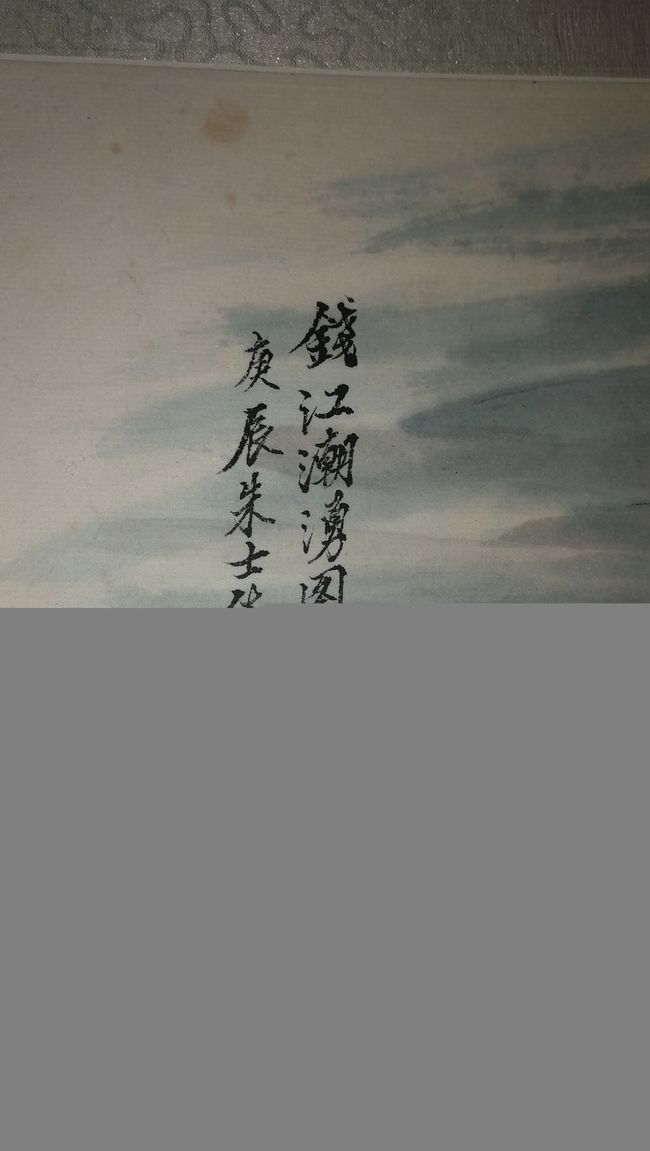 錢江潮湧图
庚辰朱士